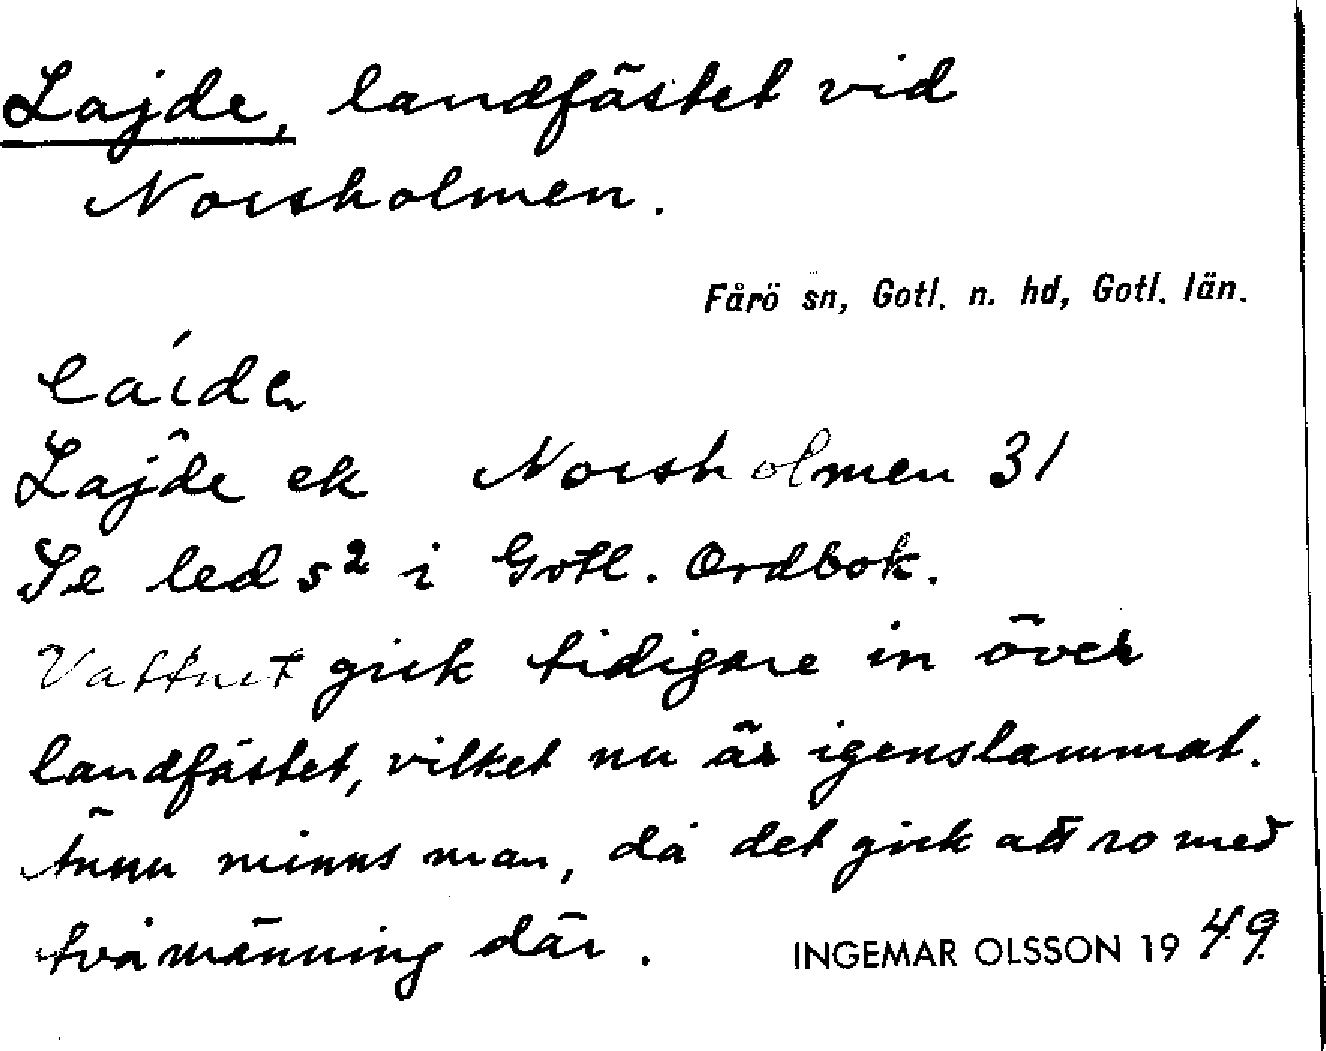 Lajde, landfästet vid
Norsholmen.
Fårö sn, Gotl. n. hd, Gotl. län.
Lajde ek Norsholmen 31
Se led s² i Gotl. Ordbok.
Vattnet gick tidigare in över
landfästet, vilket nu är igenslammat.
Ännu minns man, då det gick att ro med
tvåmänning där.
INGEMAR OLSSON 1949